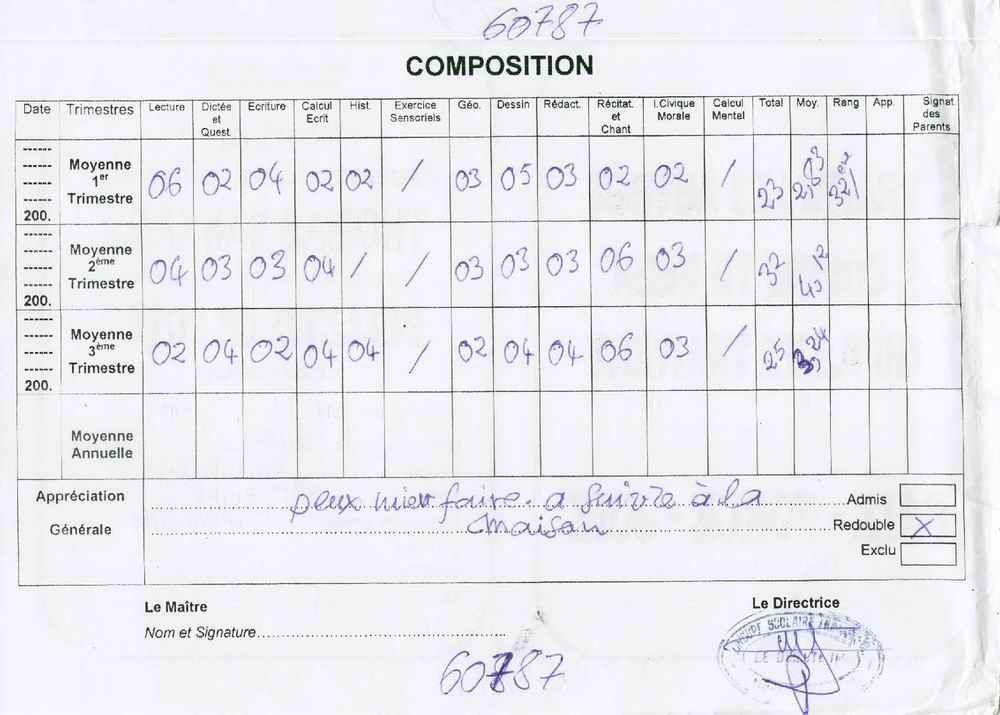 60787
COMPOSITION
Date Trimestres Lecture Dictée et Quest. Ecriture Calcul Ecrit Hist. Exercice Sensoriels Géo. Dessin Rédact. Récitat. et Chant I.Civique Morale Calcul Mental Total Moy. Rang App. Signat des Parents
200. Moyenne 1er Trimestre 06 02 04 02 02 / 03 05 03 02 02 / 23
200. Moyenne 2ème Trimestre 04 03 03 04 / / 03 03 03 06 03 / 32
200. Moyenne 3ème Trimestre 02 04 02 04 04 / 02 04 04 06 03 / 25
Moyenne Annuelle
Appréciation Générale
peux mieux faire. a suivre à la
maison
Admis
Redouble X
Exclu
Le Maître
Nom et Signature
Le Directrice
60787